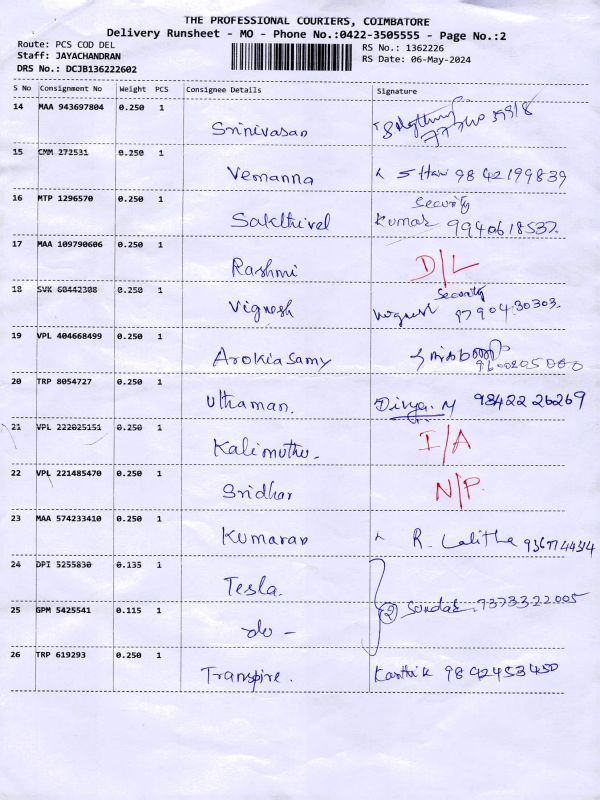 THE PROFESSIONAL COURIERS, COIMBATORE
Delivery Runsheet - MO - Phone No.:0422-3505555 - Page No.:2
Route: PCS COD DEL RS No.: 1362226
Staff: JAYACHANDRAN RS Date: 06-May-2024
DRS No.: DCJB136222602
S No Consignment No Weight PCS Consignee Details Signature
14 MAA 943697804 0.250 1
Srinivasan
15 CMM 272531 0.250 1
Vemanna 98 42199839
16 MTP 1296570 0.250 1 Security
Sakthivel Kumar 9940618537
17 MAA 109790606 0.250 1
Rashmi D/L
18 SVK 60442308 0.250 1 Security
Vignesh 97904 30303
19 VPL 404668499 0.250 1
Arokiasamy 9600205000
20 TRP 8054727 0.250 1
Uthaman. Divya. M 98422 26269
21 VPL 222025151 0.250 1
Kalimuthu. I/A
22 VPL 221485470 0.250 1
Sridhar N/P.
23 MAA 574233410 0.250 1
Kumaran R. Lalitha
24 DPI 5255830 0.135 1
Tesla.
25 GPM 5425541 0.115 1 2 Sundar 9373322005
do -
26 TRP 619293 0.250 1
Transpire. Karthik 9842453450